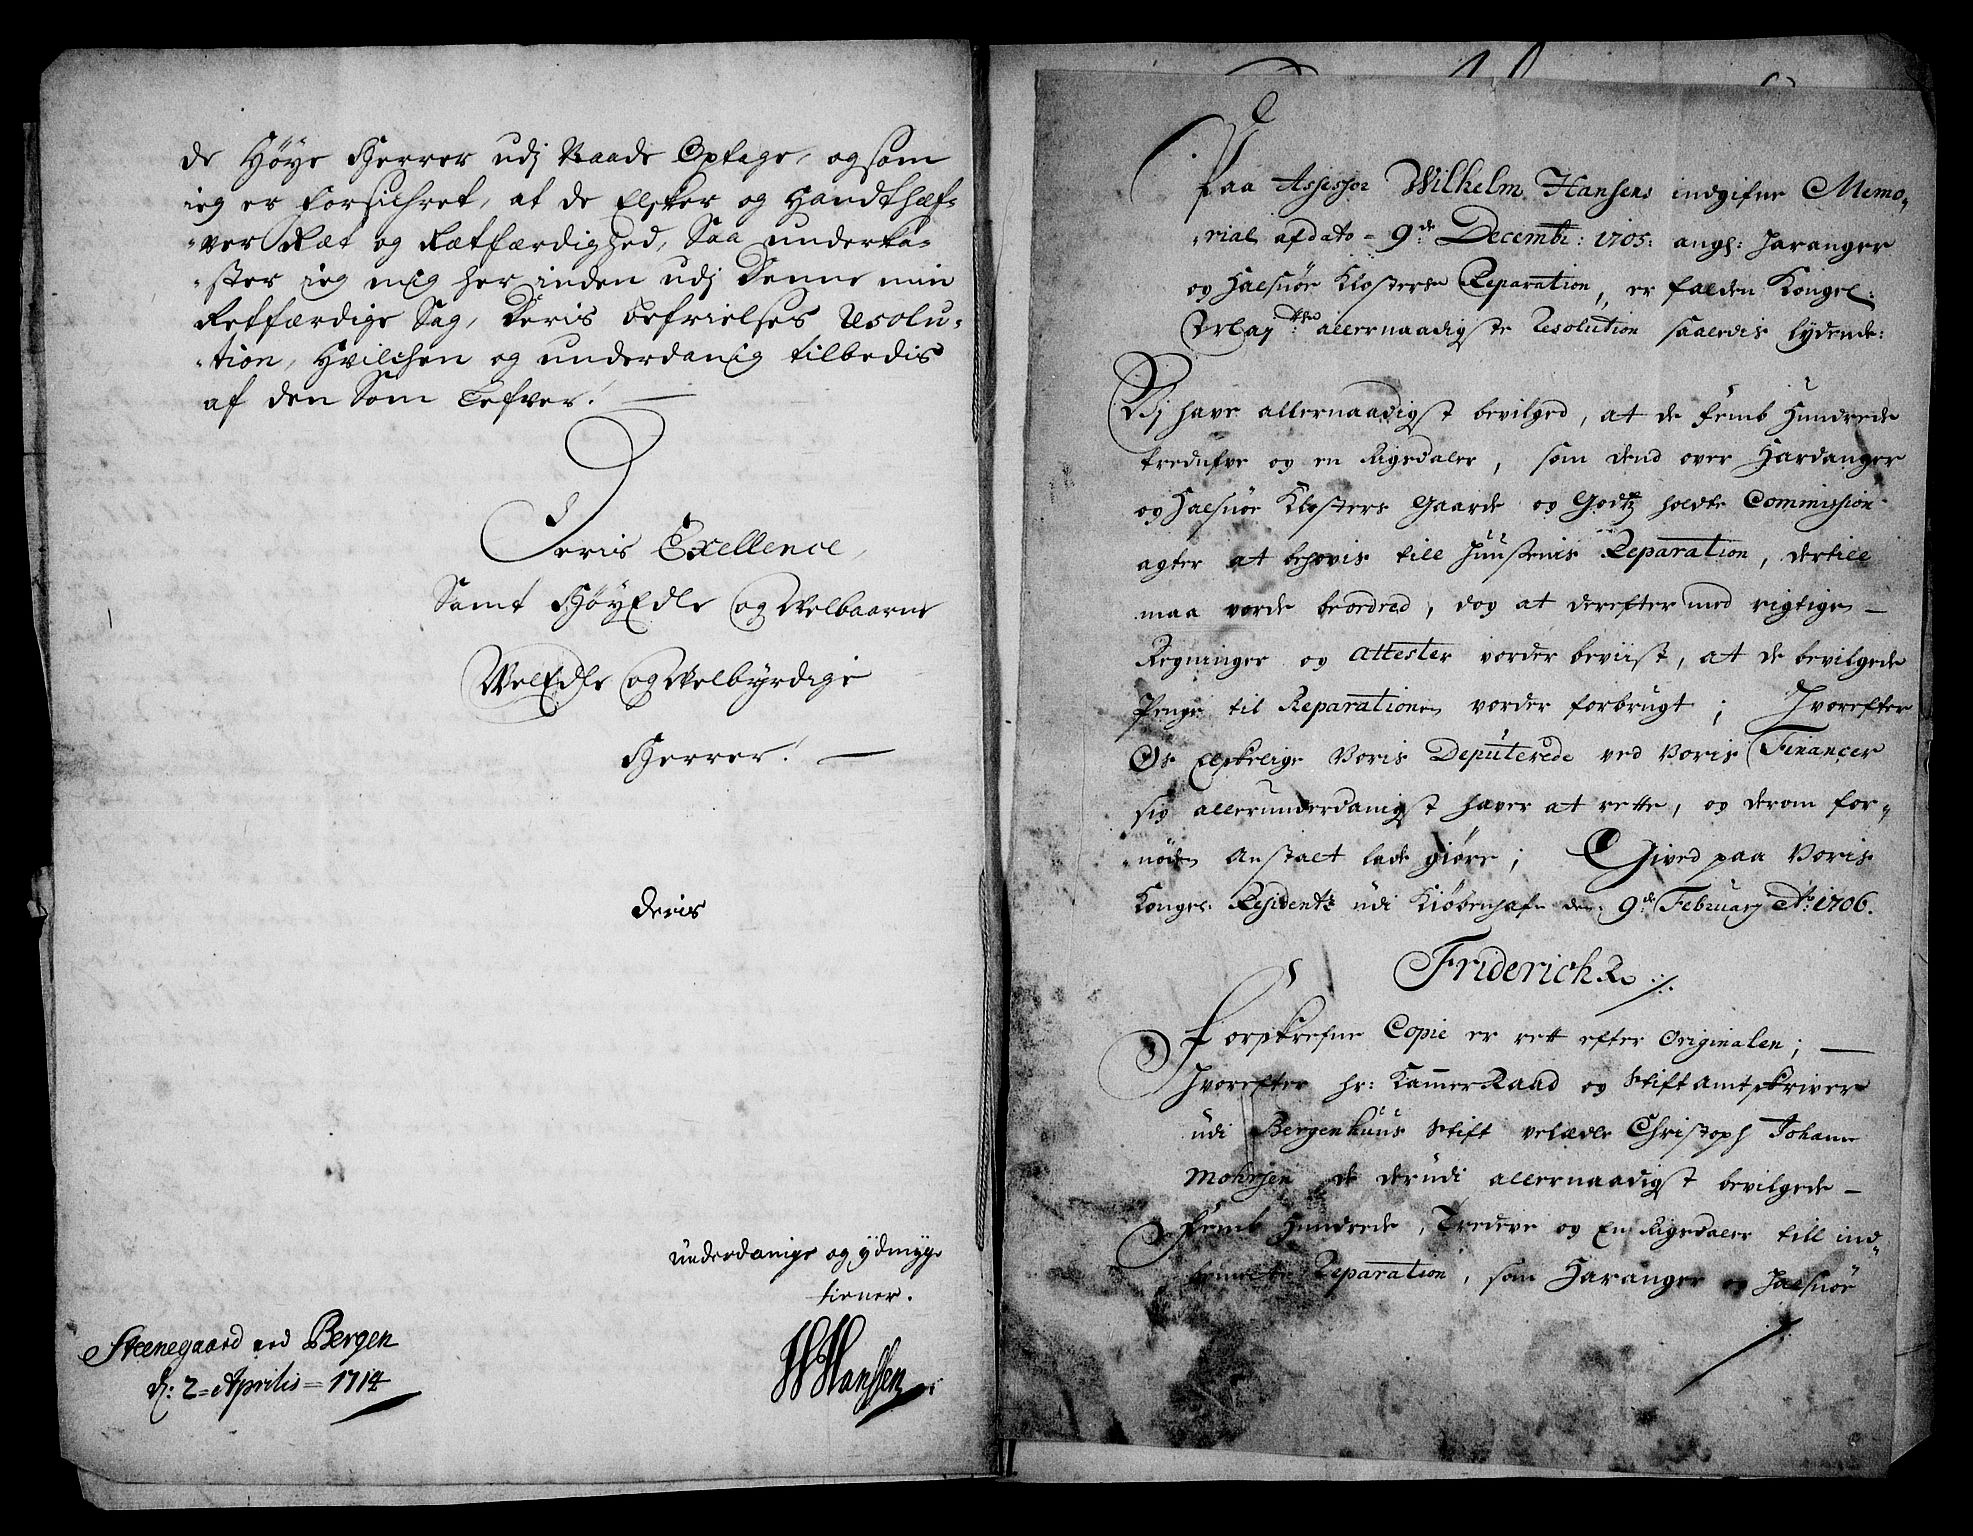 de Høye Herrer udj Naade Optage, og som
ieg er forsichret, at de Elsker og Handthæf-
-ver Ræt og Rætfærdighed, Saa underka-
-ster ieg mig her inden udj Denne min
Retfærdige Sag, Deris befrielses Resolu-
-tion, Hvilchen og underdanig tilbedis
af den Som Lefver!
Deris Exellence,
Samt HøyEdle og Velbaarne
VelEdle og Velbyrdige
Herrer!
Deris
underdanige og ydmyge
tiener.
WHanssen
Steenegaard ved Bergen
d: 2 = Aprilis = 1714
Paa Assessor Wilhelm Hansens indgifne Memo-
-rial af dato - 9de Decembr: 1705: ang: Haranger
og Halsnøe Klosters Reparation, er falden Kongel:
allernaadigste Resolution saaledis lydende:
Vj have allernaadigst bevilged, at de femb Hundrede
tredufve og en Rigsdaler, som dend over Hardanger
og Halsnøe Klosters Gaarde og Godtz holdte Commission
agter at behøvis till Huusenis Reparation, dertill
maa vorde beordred, dog at derefter med rigtige
Regninger og Attester vorder beviist, at de bevilgede
Penge til Reparationen vorder forbrugt; Hvorefter
Os Elskelige Voris Deputerede ved Voris Financer
sig allerunderdanigst haver at rette, og derom for-
-nøden Anstalt lade giøre; Gived paa Voris
Kongel: Residentz udi Kiøbenhafn den: 9de February Ao 1706.
Friderich R
Forskrefne Copie er rett efter Originalen;
Hvorefter hr: Kammer Raad og Stiftamtskriver
udi Bergenhuus Stift velædle Christoph Johan
Mohrsen de derudi allernaadigst bevilgede
Femb Hundrede, Tredeve og En Rigsdaler till ind-
Reparation, som Haranger og Halsnøe